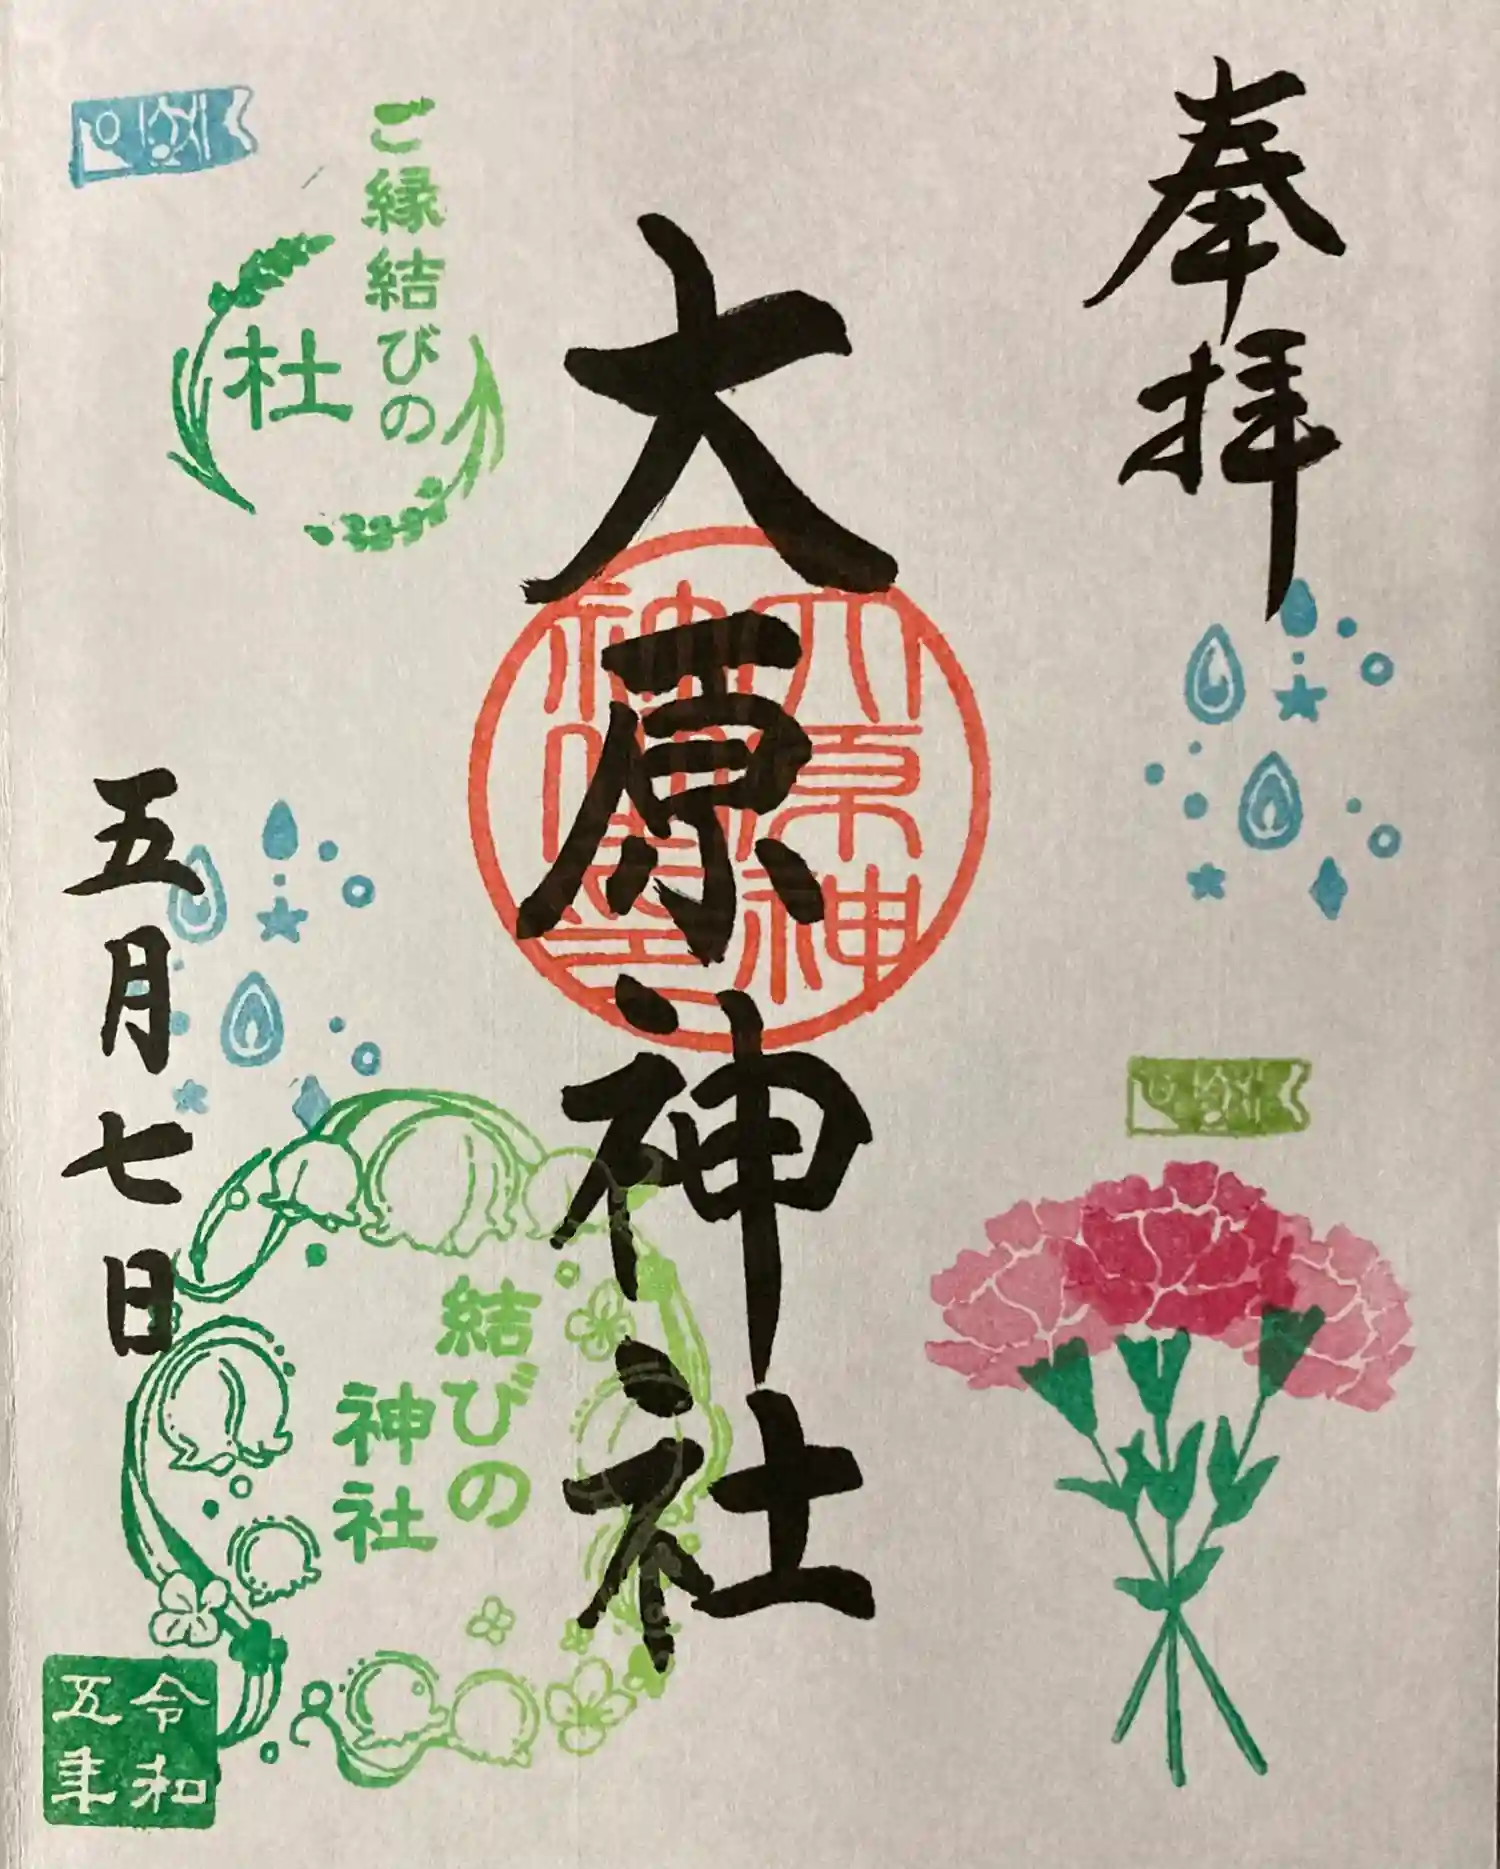 奉拝
大原神社
大原神
社
ご縁結びの
杜
結びの
神社
五月七日
令和
五年